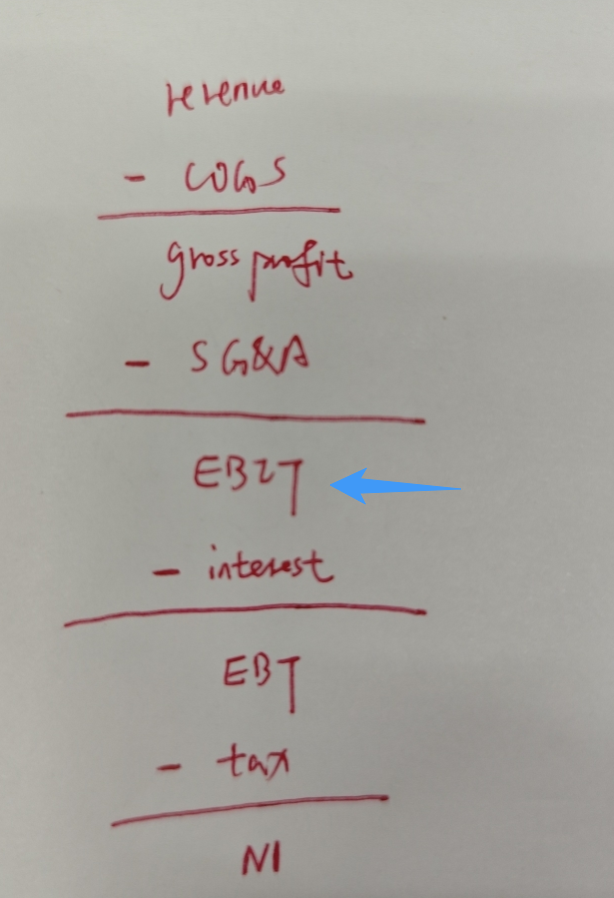 revenue
- COGS
gross profit
- SG&A
EBIT
- interest
EBT
- tax
NI